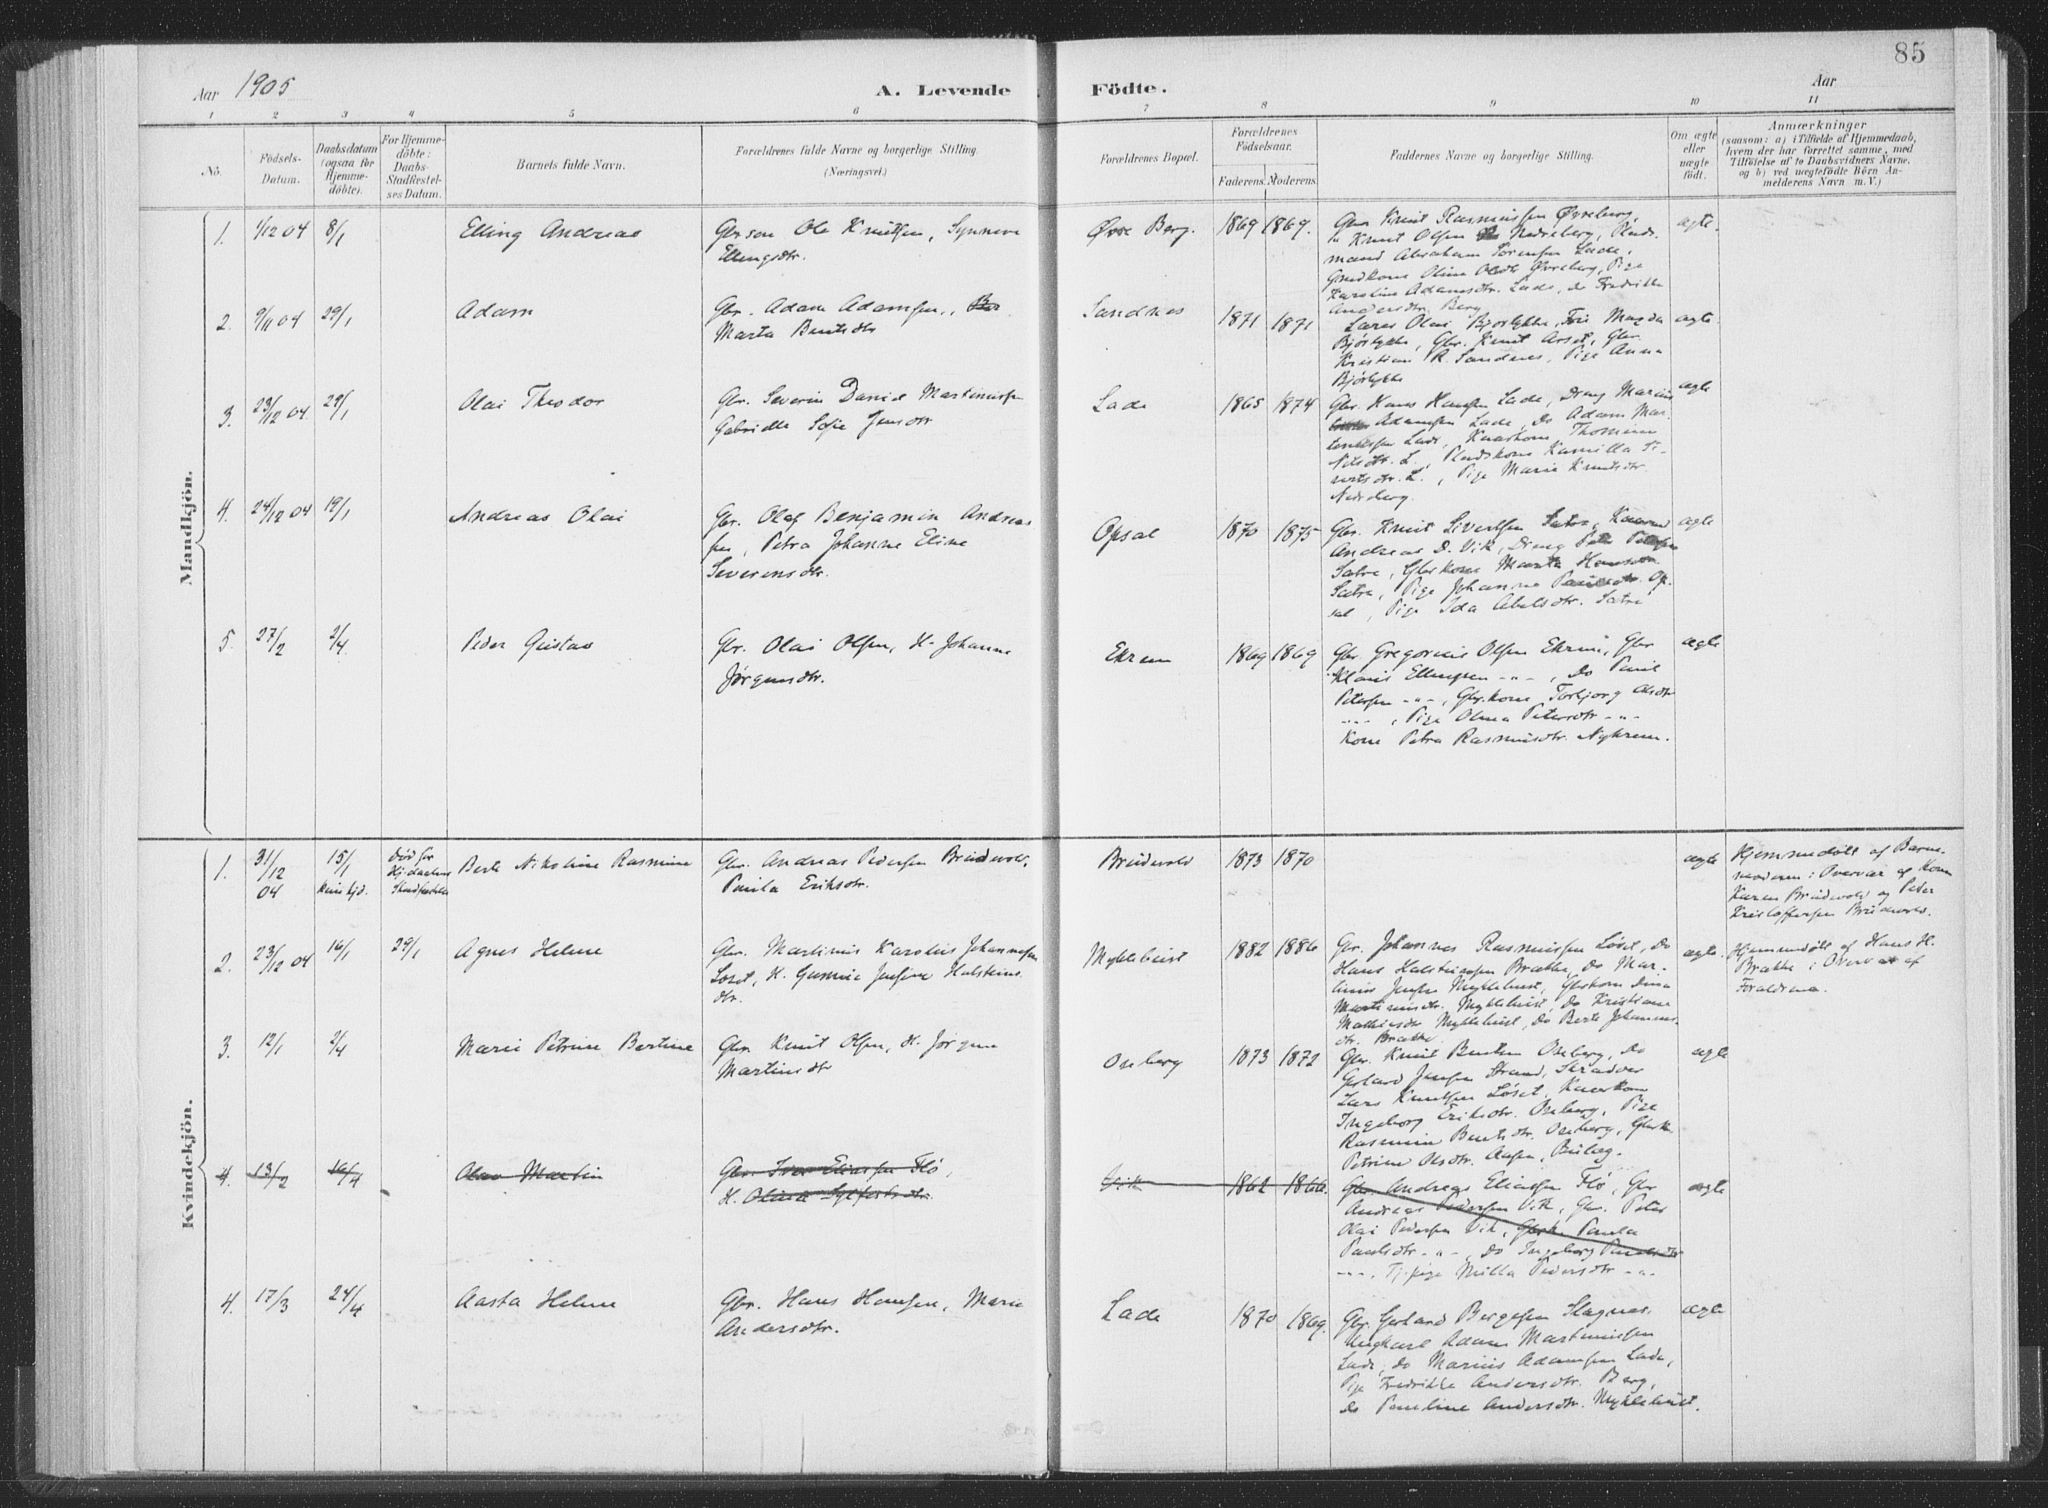 85
Aar 1905
A. Levende Födte.
Aar
1 2 3 4 5 6 7 8 9 10 11
No.
Födsels-
Datum.
Daabsdatum
(ogsaa for
Hjemme-
döbte).
For Hjemme-
döbte:
Daabs-
Stadfæstel-
ses Datum.
Barnets fulde Navn.
Forældrenes fulde Navne og borgerlige Stilling.
(Næringsvei.)
Forældrenes Bopæl.
Forældrenes
Födselsaar.
Faderens. Moderens.
Faddernes Navne og borgerlige Stilling.
Om ægte
eller
uægte
födt.
Anmærkninger
(saasom: a) i Tilfælde af Hjemmedaab,
hvem der har forrettet samme, med
Tilföielse af to Daabsvidners Navne,
og b) ved uægtefödte Börn An-
melderens Navn m. V.)
Mandkjön.
1. 4/12 04 8/1 Elling Andreas
Gbrsøn Ole Knutsen, Synneve
Ellingsdtr.
Øvre Berg. 1869 1869.
Gbr. Knut Rasmussen Øvreberg,
Knut Olsen Nedreberg, Plads-
mand Abraham Sørensen Lade,
Gmdkone Oline Olsdtr Øvreberg, Pige
Karoline Adamsdtr. Lade, do Fredrikke
Andersdtr. Berg
ægte.
2. 9/11 04 29/1 Adam
Gbr. Adam Adamsen,
Marta Bentsdtr
Sandnes 1871 1871
Lærer Olai Bjørlykke, Frue Magda
Bjørlykke, Gbr. Knut Aarset, Gbr.
Kristian R. Sandnes, Pige Anna
Bjørlykke
ægte.
3. 23/12 04 29/1 Olai Theodor
Gbr. Severin Daniel Martinussen
Gabrielle Sofie Jensdtr
Lade 1865 1874
Gbr. Hans Hansen Lade, Dreng Marius
Adamsen Lade, Do Adam Mar-
tinussen Lade, Kaarkone Thomine
Nilsdtr. L., Pladskone Kamilla Si-
vertsdtr. L., Pige Marie Knutsdtr.
Nedreberg.
ægte
4. 24/12 04 19/1 Andreas Olai
Gbr. Olaf Benjamin Andreas
sen, Petra Johanne Eline
Severinsdtr.
Opsal 1870 1875
Gbr. Knut Sivertsen Sætre, Kaarm
Andreas D. Vik, Dreng Peter Petersen
Sætre, Gbrkone Marta Hansdtr.
Sætre, Pige Johanne Paulsdtr. Op-
sal, Pige Ida Abelsdtr. Sætre
ægte
5. 27/2 2/4 Peder Gustav
Gbr. Olai Olsen, H. Johanne
Jørgensdtr.
Ekrem 1869 1869
Gbr. Gregorius Olsen Ekrem, Gbr
Klaus Ellingsen -"-, Do Paul
Petersen -"-, Gbr.kone Torbjørg Olsdtr
-"-, Pige Olina Petersdtr -"-
Kone Petra Rasmusdtr. Nykrem.
ægte
Kvindekjön.
1. 31/12 04 15/1 Død før
Hj.daabens
Stadfæstelse
Berte Nikoline Rasmine
Gbr. Andreas Pedersen Brudevold,
Paula Eriksdtr.
Brudevold 1873 1870
ægte
Hjemmedøbt af Barne-
moderen i Overvær af Kone
Karen Brudevold og Peder
Kristoffersen Brudevold.
2. 23/12 04 16/1 29/1 Agnes Helene
Gbr. Martinus Karolius Johannesen
Løset, H. Gurine Jensine Halsteins
dtr.
Myklebust 1882 1886
Gbr. Johannes Rasmussen Løset, Do
Hans Halsteinsen Brække, Do Mar-
tinus Jensen Myklebust, Gbrkone Dina
Martinusdtr. Myklebust, Do Kristiane
Mathiasdtr Myklebust, Do Berte Johannes-
dtr. Brække.
ægte.
Hjemmedøbt af Hans H.
Brække i Overvær af
Forældrene.
3. 12/1 2/4 Marie Petrine Bertine
Gbr. Knut Olsen, H. Jørgine
Martinsdtr
Oseberg 1873 1872
Gbr. Knut Bentsen Oseberg, Do
Gerhard Jensen Strand, Skrædder
Lars Knutsen Løset, Kaarkone
Ingeborg Eriksdtr. Oseberg, Pige
Rasmine Bentsdtr. Oseberg, Gbrk.
Petrine Olsdtr. Aasen,
ægte
4. 13/2 16/4 Olav Martin
Gbr. Ivar Eliassen Flø,
H. Oline Sylfestsdtr.
Vik 1862 1866
Gbr. Andreas Eliassen Flø, Gbr
Andreas Pedersen Vik, Gbr. Peter
Olai Pedersen Vik, Gbrk. Paula
Paulsdtr -"-, Do Ingeborg Paulsdtr
-"-, Tj.pige Milla Pedersdtr -"-
ægte
4. 17/3 24/4 Aasta Helene
Gbr. Hans Hansen, Marie
Andersdtr.
Lade 1870 1869.
Gbr. Gerhard Bergesen Slagnes
Ungkarl Adam Martinussen
Lade, do Marius Adamsen Lade,
Pige Fredrikke Andersdtr. Berg,
do Pauline Andersdtr. Myklebust.
ægte